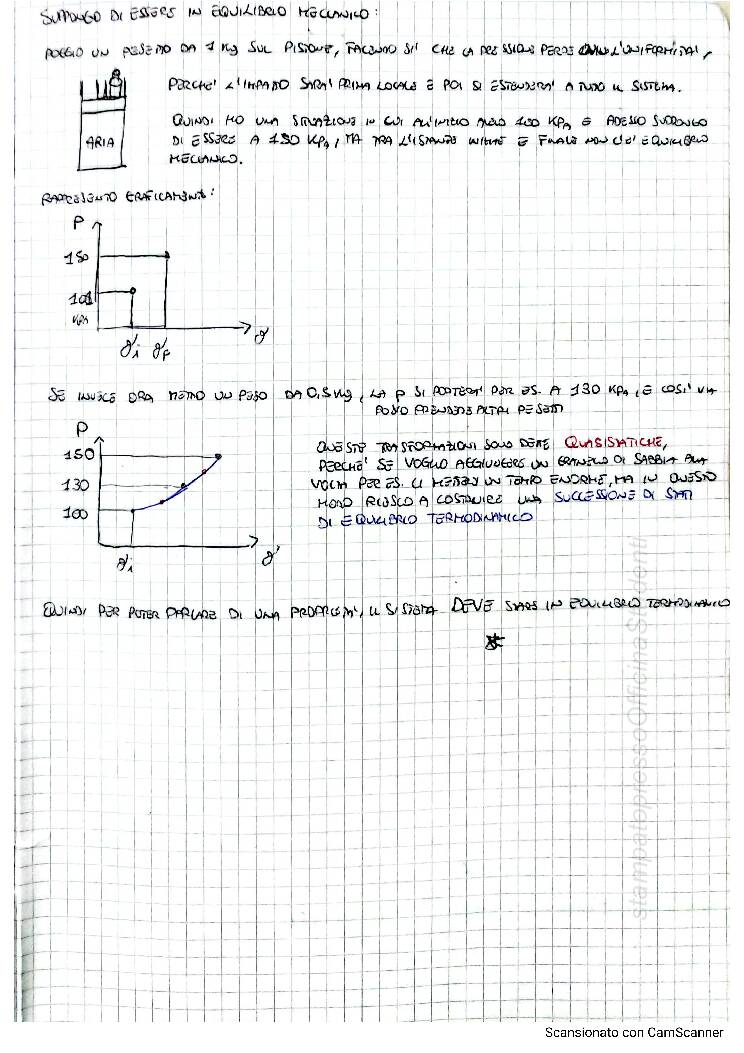 SUPPONGO DI ESSERE IN EQUILIBRIO MECCANICO:
POGGIO UN PESETTO DA 1 Kg SUL PISTONE, FACENDO SI' CHE LA PRESSIONE PERDE QUINDI L'UNIFORMITA',
PERCHE' L'IMPATTO SARA' PRIMA LOCALE E POI SI ESTENDERA' A TUTTO IL SISTEMA.
QUINDI HO UNA SITUAZIONE IN CUI ALL'INIZIO AVEVO 100 KPa E ADESSO SUPPONGO
ARIA
DI ESSERE A 150 KPa, MA TRA L'ISTANTE INIZIALE E FINALE NON C'E' EQUILIBRIO
MECCANICO.
RAPPRESENTO GRAFICAMENTE:
P
150
101
KPa
i
f
SE INVECE ORA METTO UN PESO DA 0,5 Kg, LA P SI PORTERA' PER ES. A 130 KPa, E COSI' VIA
POSSO PRENDERE ALTRI PESETTI
P
150
130
100
i
QUESTE TRASFORMAZIONI SONO DETTE QUASISTATICHE,
PERCHE' SE VOGLIO AGGIUNGERE UN GRANELLO DI SABBIA ALLA
VOLTA PER ES. CI METTEREI UN TEMPO ENORME, MA IN QUESTO
MODO RIESCO A COSTRUIRE UNA SUCCESSIONE DI STATI
DI EQUILIBRIO TERMODINAMICO
QUINDI PER POTER PARLARE DI UNA PROPRIETA', IL SISTEMA DEVE STARE IN EQUILIBRIO TERMODINAMICO
stampatopressoOfficinaStudenti
Scansionato con CamScanner